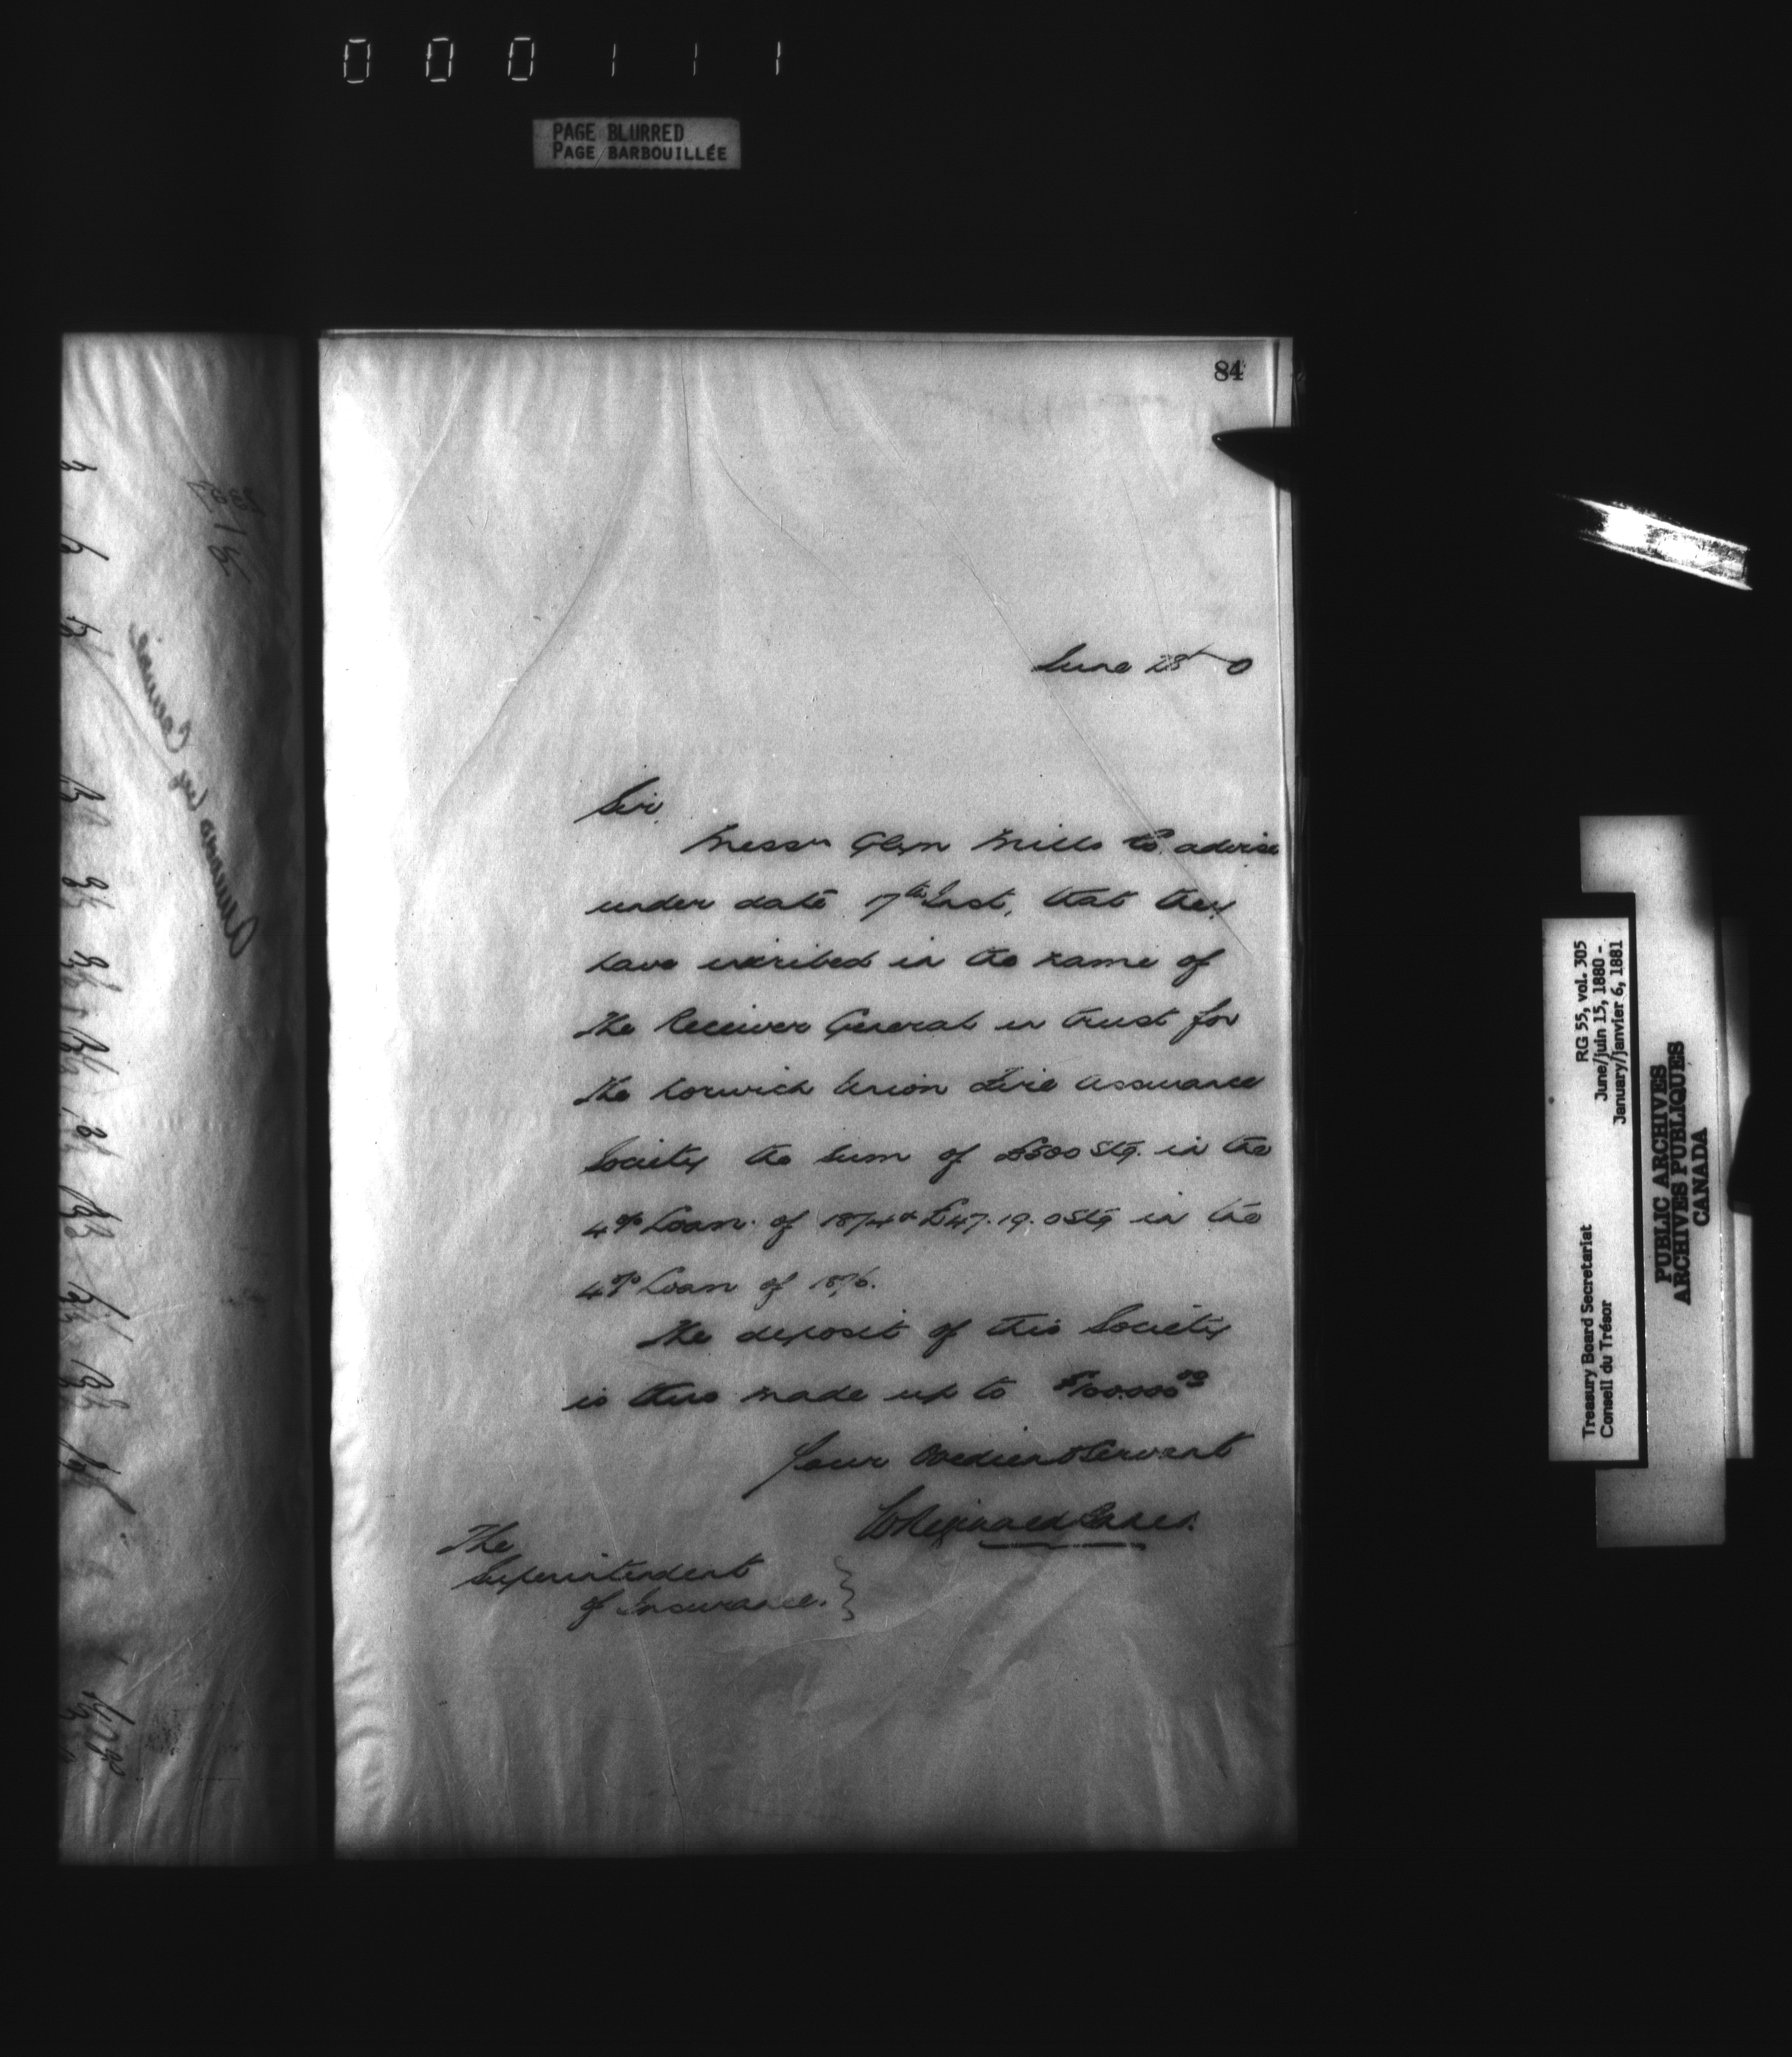 000111
PAGE BLURRED
PAGE BARBOUILLÉE
84
June 28th 0
Sir,
Messrs Glyn Mills Co. advise
under date 17th Inst. that they
have inscribed in the name of
The Receiver General in trust for
The Norwich Union Fire Assurance
Society the sum of £500 Stg. in the
4% Loan of 1874 & £47.19.0 Stg in the
4% Loan of 1876.
The deposit of this Society
is thus made up to $100.000 00
Your Obedient Servant
W Reginald
The
Superintendent
of Insurance.
RG 55, vol. 305
June/juin 15, 1880 -
January/janvier 6, 1881
Treasury Board Secretariat
Conseil du Trésor
PUBLIC ARCHIVES
ARCHIVES PUBLIQUES
CANADA